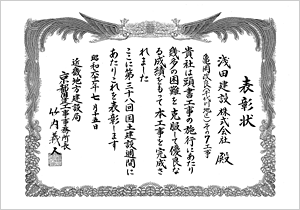 表彰状
浅田建設株式会社 殿
亀岡改良(代行地区)その7工事
貴社は頭書工事の施行にあたり
幾多の困難を克服して優良な
る成績をもって本工事を完成さ
れました
ここに第三十八回国土建設週間に
あたりこれを表彰します
昭和六十一年七月十五日
近畿地方建設局
京都国道工事事務所長
竹内義人